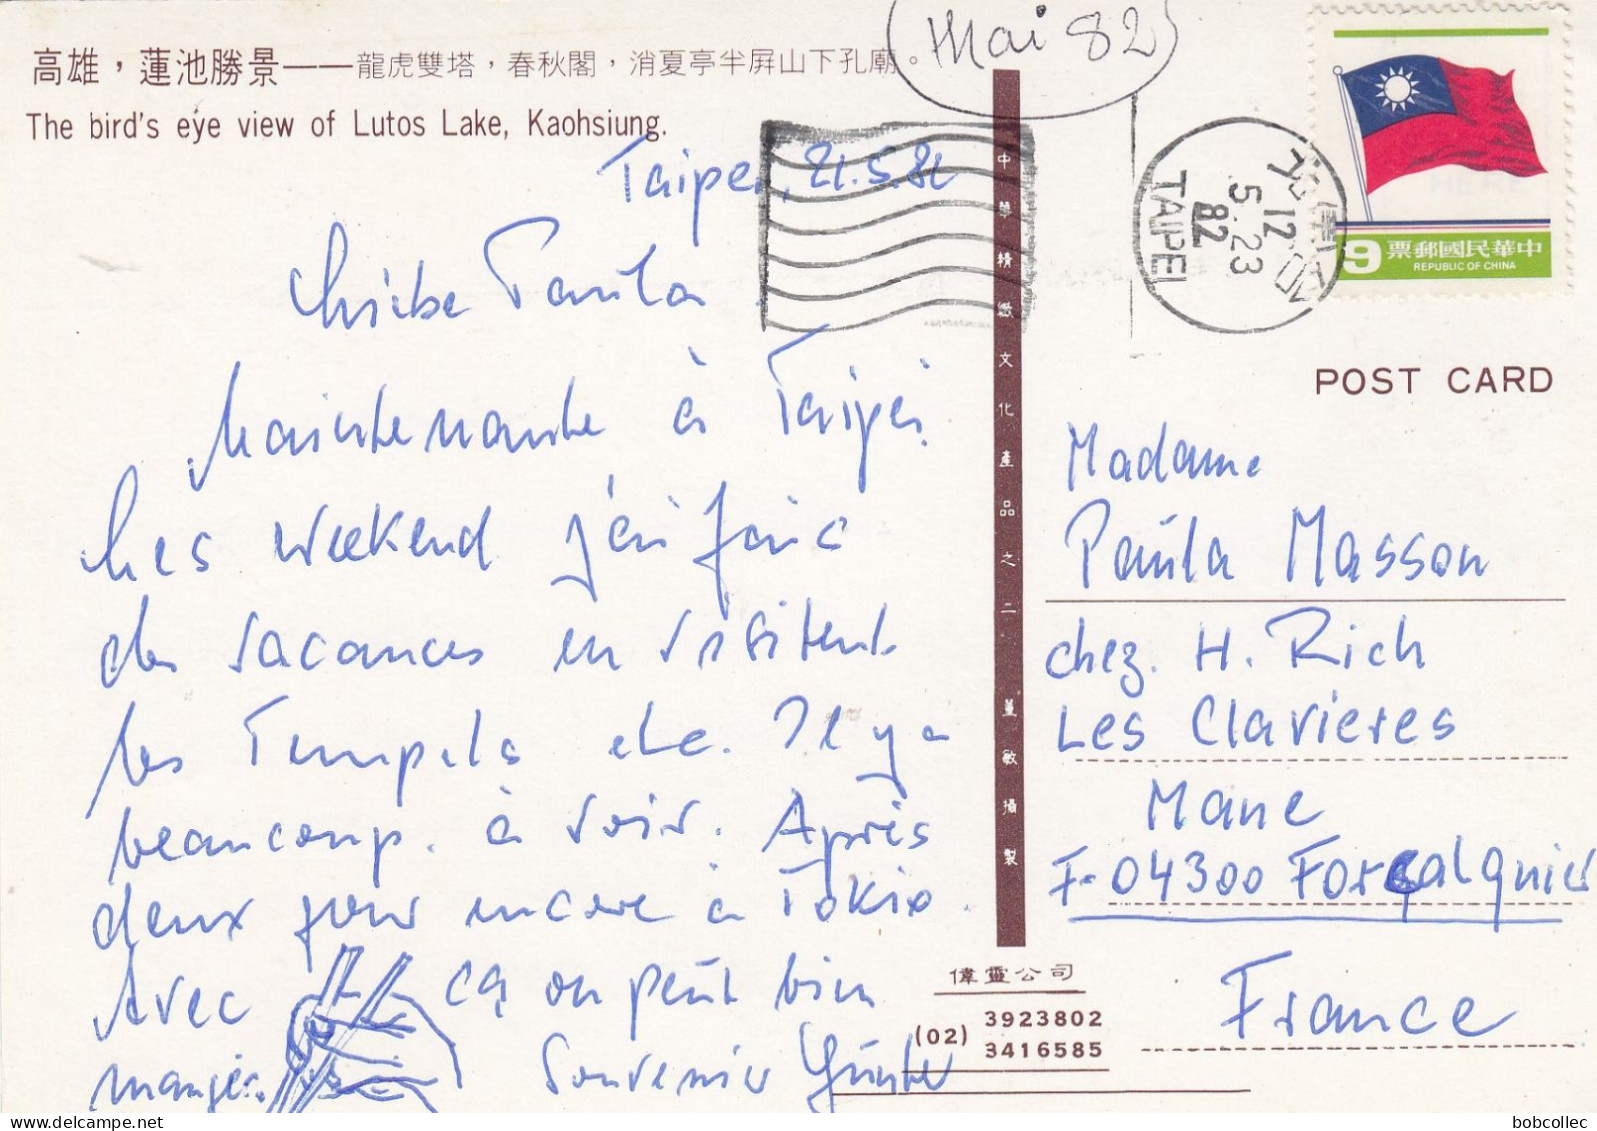 Mai 82
高雄，蓮池勝景——龍虎雙塔，春秋閣，消夏亭半屏山下孔廟。
The bird's eye view of Lutos Lake, Kaohsiung.
Taipei, 21.5.82
Paula
Maintenante à Taipei.
Les weekend j'ai fais
des vacances en visitent
les Tempels etc. Il y a
beaucoup. à voir. Après
deux jour encore à Tokio.
Avec ça on peût bien
manger.
Souvenir Günter
中華精緻文化產品之二
敏攝製
偉靈公司
(02) 3923802
3416585
TAIPEI
12
5.23
82
中華民國郵票
REPUBLIC OF CHINA
9
POST CARD
Madame
Paula Masson
chez. H. Rich
Les Clavieres
Mane
F-04300 Forcalquier
France
bobcollec